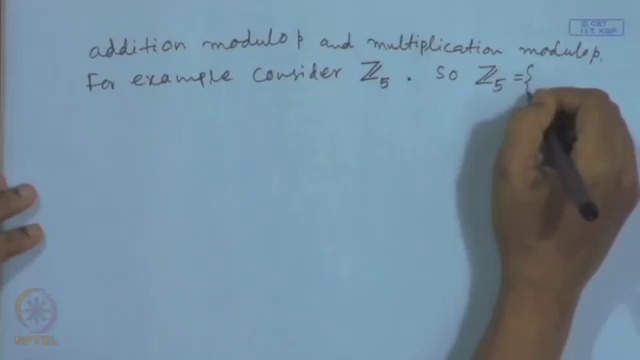 © CET
I.I.T. KGP
addition modulo p and multiplication modulo p.
For example consider ℤ₅ . So ℤ₅ = {
NPTEL